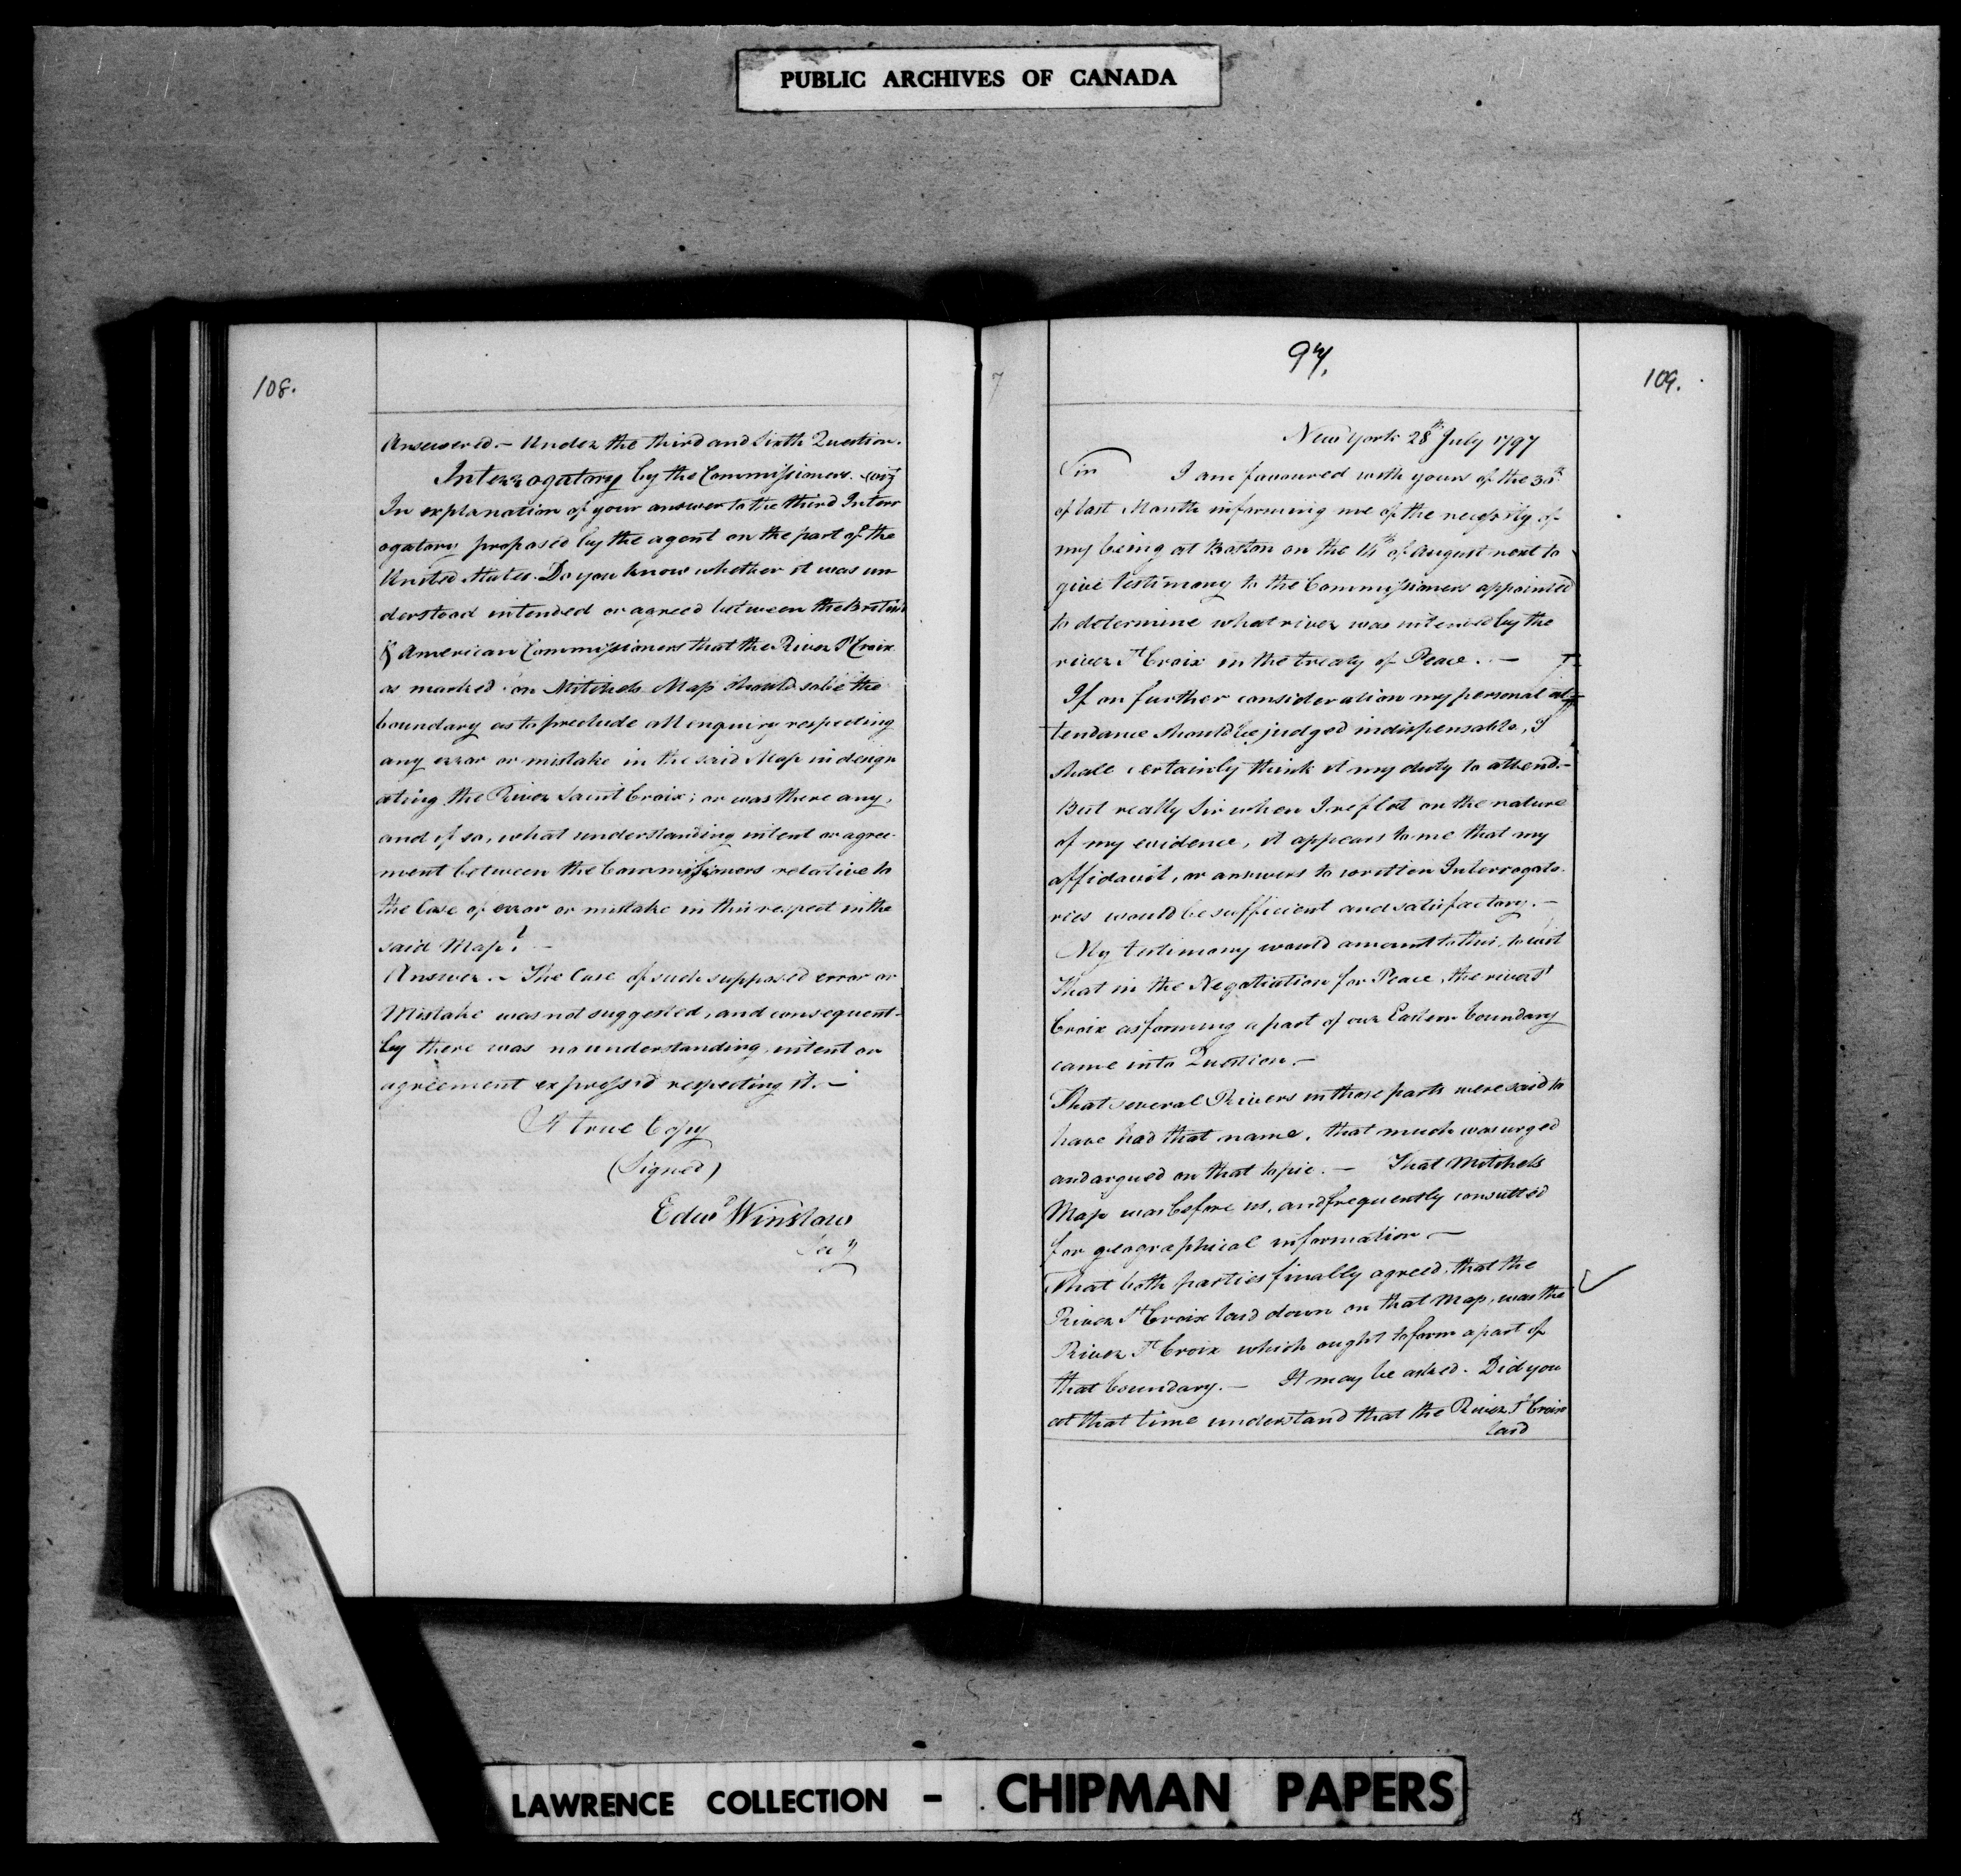 PUBLIC ARCHIVES OF CANADA
108.
Answered. - Under the third and Sixth Question.
Interrogatory by the Commissioners. viz
In explanation of your answer to the third Interr
ogatory proposed by the agent on the part of the
United States. Do you know whether it was un
derstood intended or agreed between the British
& American Commissioners that the River St Croix
as marked on Mitchels Map should so be the
boundary as to preclude all enquiry respecting
any error or mistake in the said Map in design
ating the River Saint Croix; or was there any,
and if so, what understanding intent or agree-
ment between the Commissioners relative to
the Case of error or mistake in this respect in the
said Map? -
Answer. - The Case of such supposed error or
Mistake was not suggested, and consequent-
ly there was no understanding, intent or
agreement expressed respecting it. -
A true Copy
(Signed)
Edwd Winslow
Secy
97.
109.
New York 28th July 1797
Sir I am favoured with yours of the 30th
of last Month informing me of the necessity of
my being at Boston on the of August next to
give testimony to the Commissioners appointed
to determine what river was intended by the
river St Croix in the treaty of Peace. -
If on further consideration my personal at-
tendance should be judged indispensable, I
shall certainly think it my duty to attend. -
But really Sir when I reflect on the nature
of my evidence, it appears to me that my
affidavit, or answers to written Interrogato-
ries would be sufficient and satisfactory. -
My testimony would amount to this, to wit
That in the Negotiation for Peace, the river St
Croix as forming a part of our Eastern boundary
came into Question. -
That several Rivers in those parts were said to
have had that name, that much was urged
and argued on that topic. - That Mitchels
Map was before us, and frequently consulted
for geographical information -
That both parties finally agreed, that the
River St Croix laid down on that Map, was the
River St Croix which ought to form a part of
that boundary. - It may be asked. Did you
at that time understand that the River St Croix
laid
LAWRENCE COLLECTION - CHIPMAN PAPERS